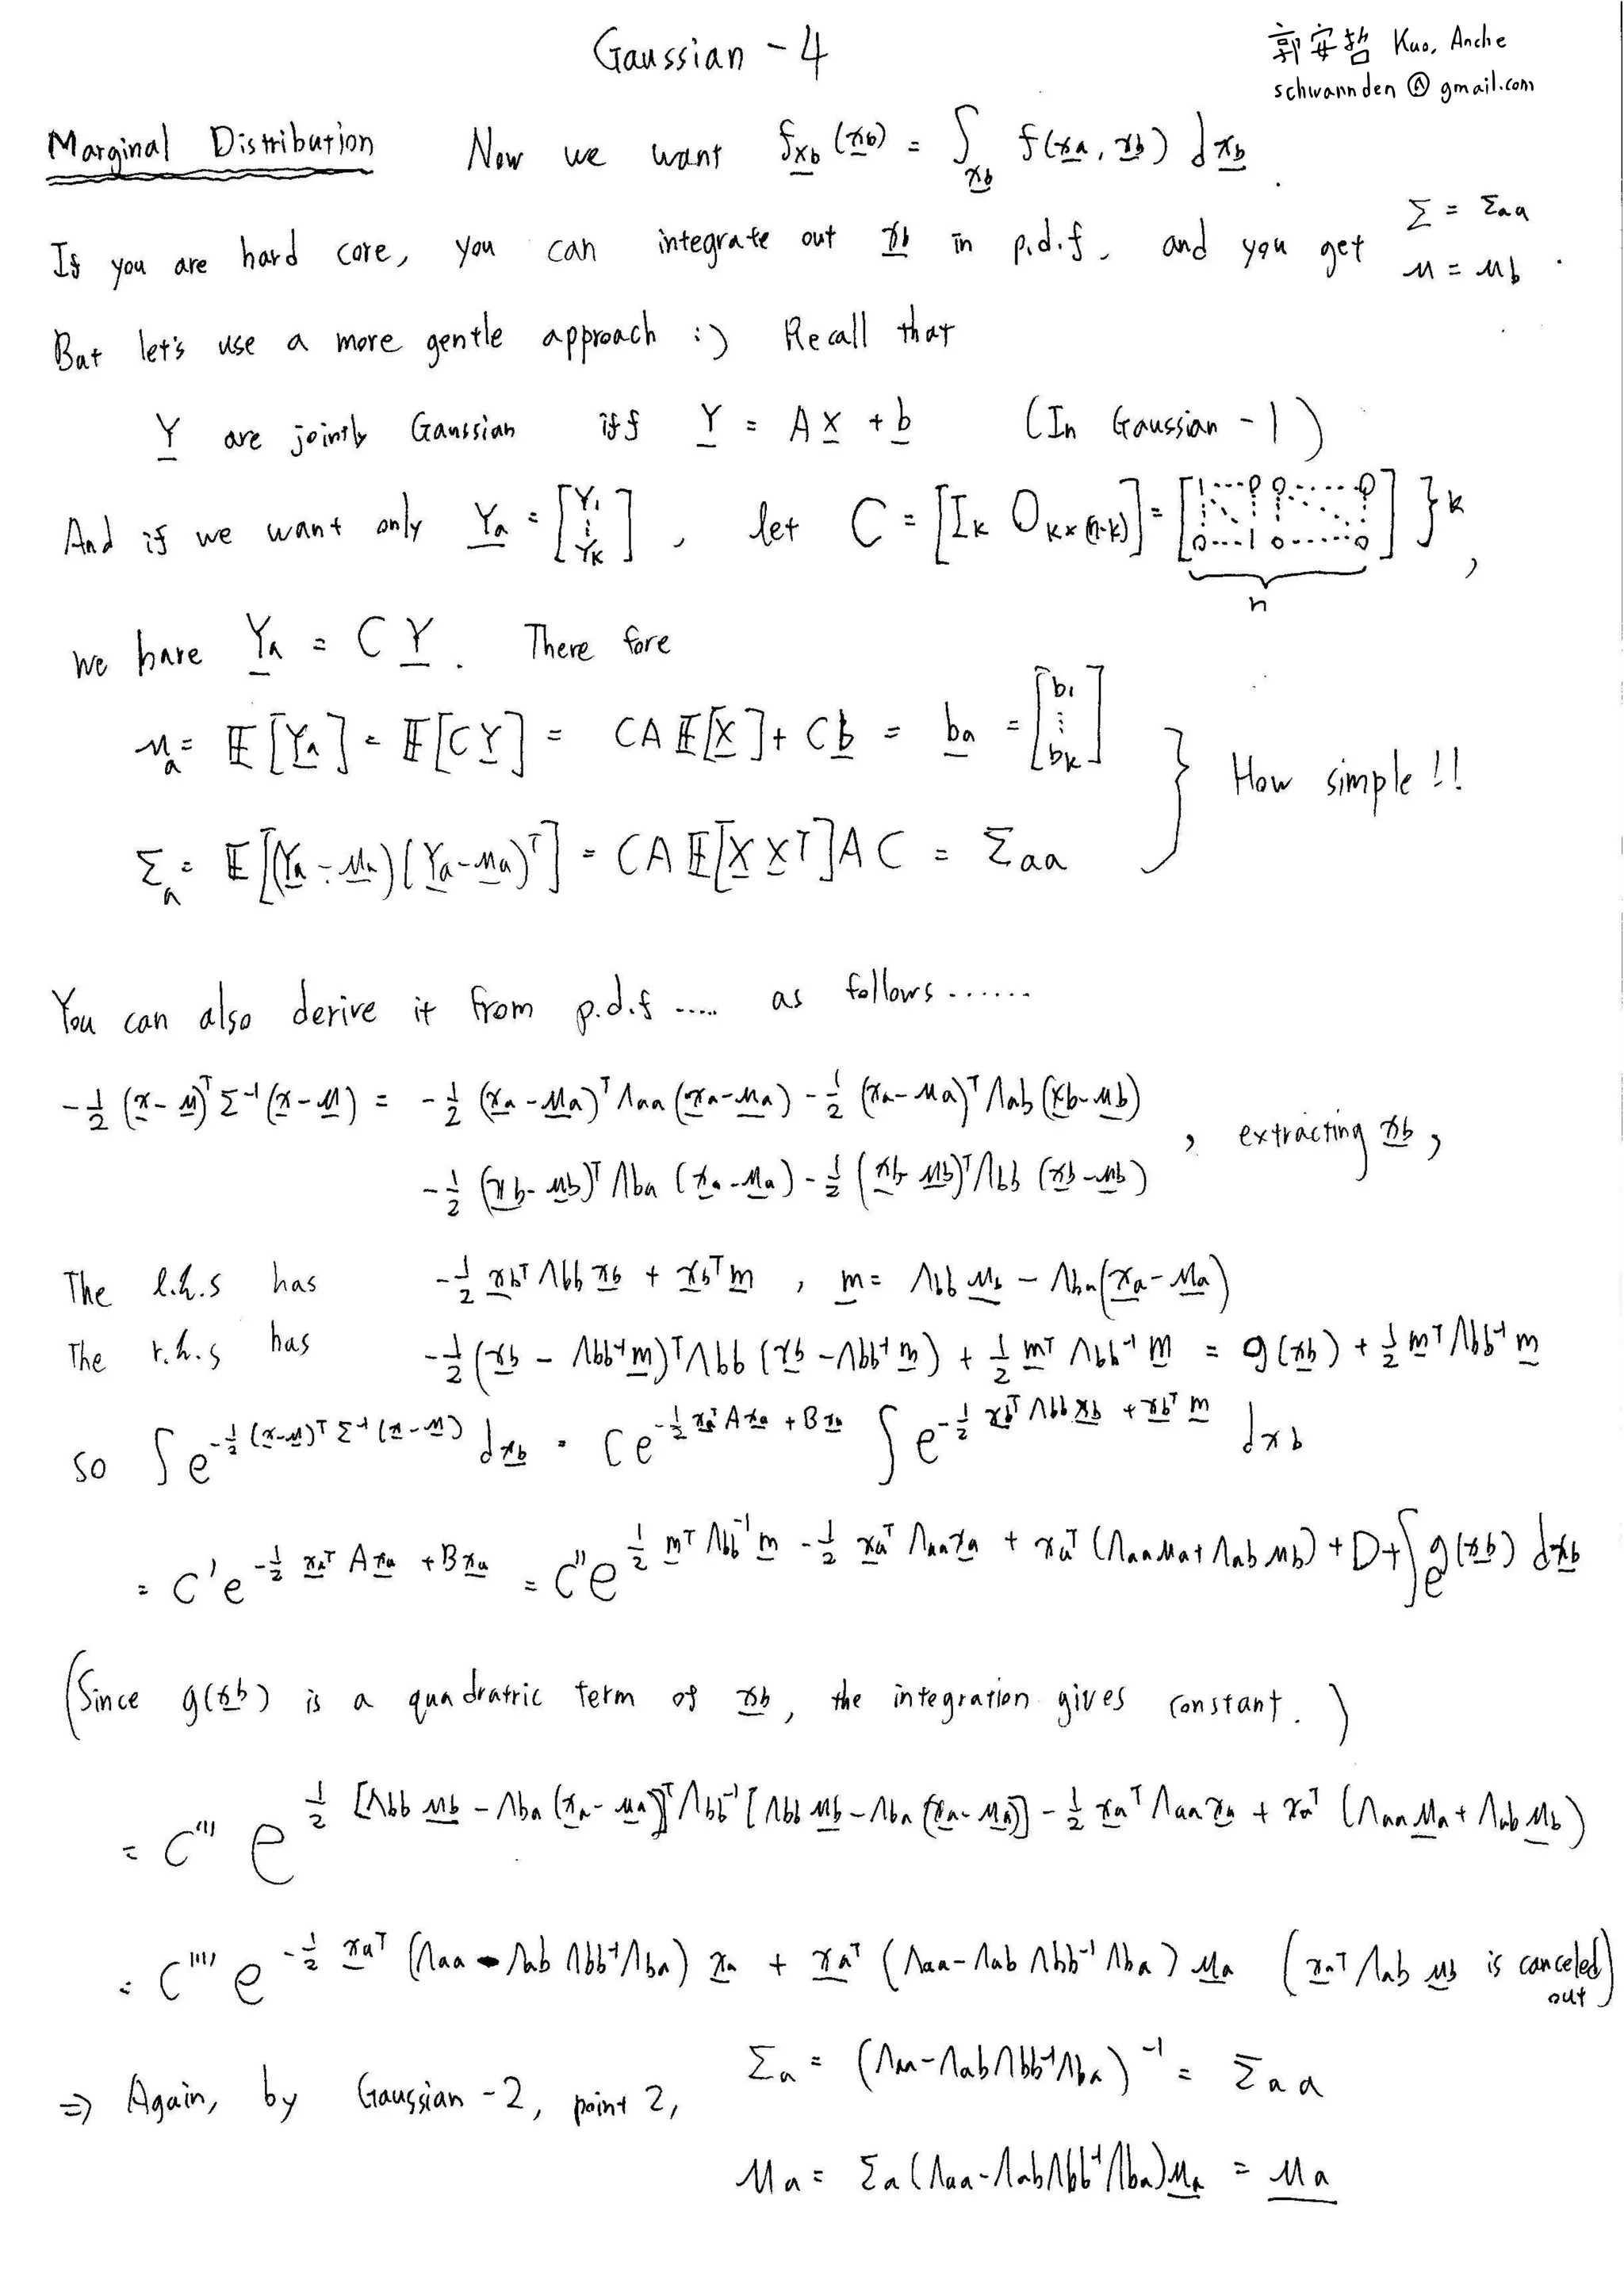 Gaussian - 4
郭安哲 Kuo, Anche
schwannden @ gmail.com
Marginal Distribution Now we want f_{x_b}(x_b) = ∫_{x_b} f(x_a, x_b) dx_b.
If you are hard core, you can integrate out x_b in p.d.f, and you get Σ = Σaa μ = μb.
But let's use a more gentle approach :) Recall that
Y are jointly Gaussian iff Y = AX + b (In Gaussian - 1)
And if we want only Ya = [Y1 ⋮ YK], let C = [IK OK×(n-K)] = [1...0 0......0 ⋮ 0...1 0......0] }K,
n
we have Ya = CY. There fore
μa = E[Ya] = E[CY] = CAE[X] + Cb = ba = [b1 ⋮ bK]
Σa = E[(Ya - μa)(Ya - μa)^T] = CAE[XX^T]AC = Σaa } How simple!!
You can also derive it from p.d.f ..... as follows ......
-1/2 (x - μ)^T Σ^-1 (x - μ) = -1/2 (xa - μa)^T Λaa (xa - μa) - 1/2 (xa - μa)^T Λab (xb - μb)
-1/2 (xb - μb)^T Λba (xa - μa) - 1/2 (xb - μb)^T Λbb (xb - μb) , extracting xb,
The l.h.s has -1/2 xb^T Λbb xb + xb^T m , m = Λbb μb - Λba(xa - μa)
The r.h.s has -1/2 (xb - Λbb^-1 m)^T Λbb (xb - Λbb^-1 m) + 1/2 m^T Λbb^-1 m = g(xb) + 1/2 m^T Λbb^-1 m
so ∫ e^{-1/2 (x-μ)^T Σ^-1 (x-μ)} dxb = C e^{-1/2 xa^T A xa + B xa} ∫ e^{-1/2 xb^T Λbb xb + xb^T m} dxb
= C' e^{-1/2 xa^T A xa + B xa} = C'' e^{1/2 m^T Λbb^-1 m - 1/2 xa^T Λaa xa + xa^T (Λaa μa + Λab μb) + D +} ∫ e^{g(xb)} dxb
(Since g(xb) is a quadratric term of xb, the integration gives constant.)
= C''' e^{1/2 [Λbb μb - Λba (xa - μa)]^T Λbb^-1 [Λbb μb - Λba (xa - μa)] - 1/2 xa^T Λaa xa + xa^T (Λaa μa + Λab μb)}
= C'''' e^{-1/2 xa^T (Λaa - Λab Λbb^-1 Λba) xa + xa^T (Λaa - Λab Λbb^-1 Λba) μa} (xa^T Λab μb is canceled out)
⇒ Again, by Gaussian - 2, point 2, Σa = (Λaa - Λab Λbb^-1 Λba)^-1 = Σaa
μa = Σa (Λaa - Λab Λbb^-1 Λba) μa = μa